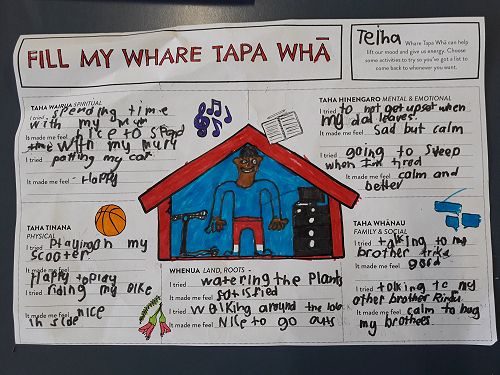 FILL MY WHARE TAPA WHĀ
Telha
Whare Tapa Whā can help
lift our mood and give us energy. Choose
some activities to try so you've got a list to
come back to whenever you want.
TAHA WAIRUA SPIRITUAL
I tried spending time
with my mum
It made me feel nice to spend
time with my mum
I tried patting my cat
It made me feel Happy
TAHA HINENGARO MENTAL & EMOTIONAL
I tried to not get upset when
my dad leaves.
It made me feel sad but calm
I tried going to sleep
when I'm tired
It made me feel calm and
better
TAHA TINANA
PHYSICAL
I tried Playing on my
scooter
It made me feel
Happy to play
I tried riding my bike
It made me feel nice
in side
WHENUA LAND, ROOTS -
I tried watering the plants
It made me feel satisfied
I tried walking around the
It made me feel Nice to go outs
TAHA WHĀNAU
FAMILY & SOCIAL
I tried talking to my
brother
It made me feel good
I tried talking to my
other brother
It made me feel calm to hug
my brothers